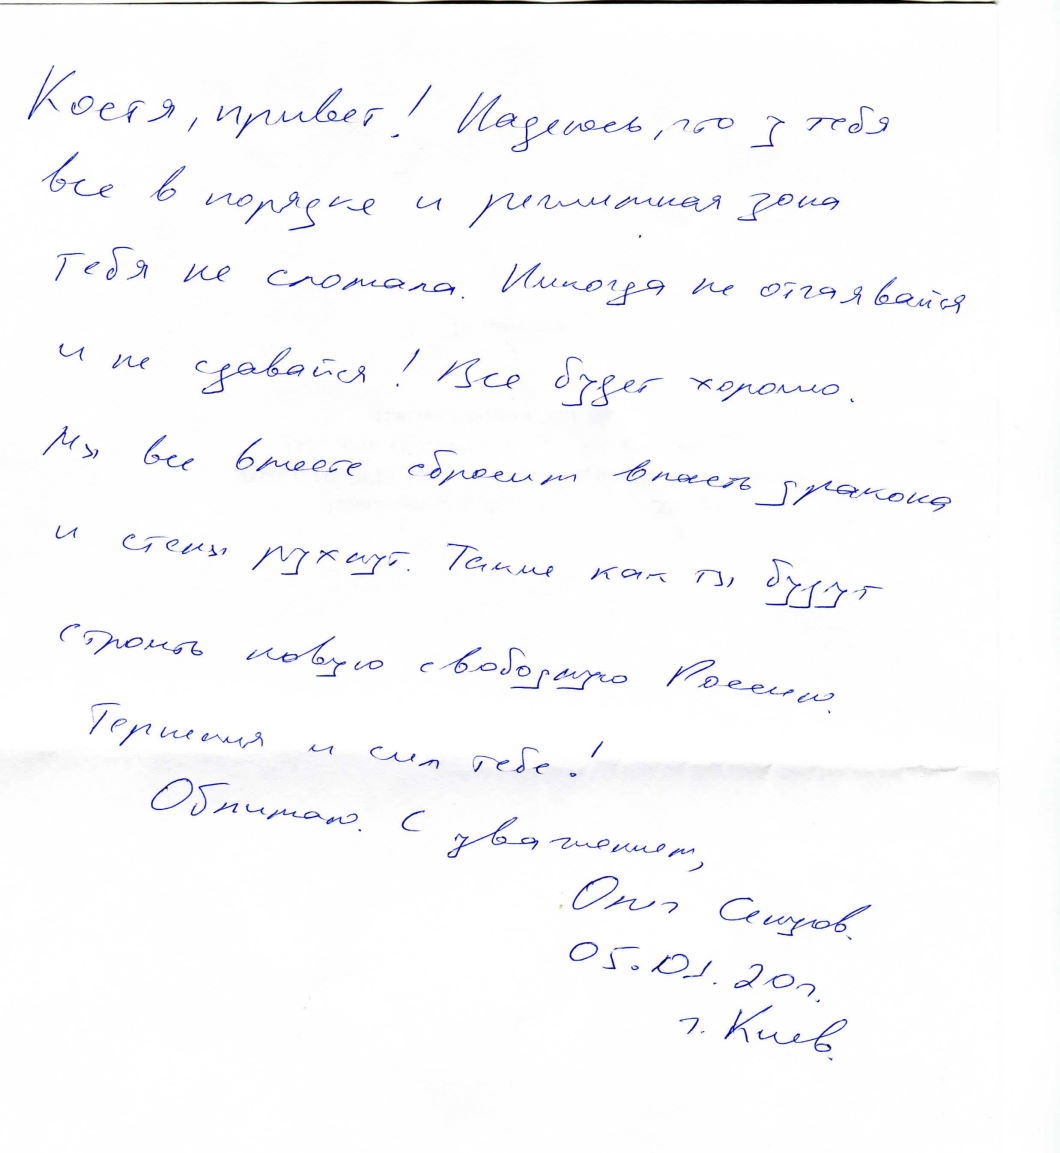 Костя, привет! Надеюсь, что у тебя
все в порядке и режимная зона
тебя не сломала. Никогда не отчаявайся
и не сдавайся! Все будет хорошо.
Мы все вместе сбросим власть дракона
и стены рухнут. Такие как ты будут
строить новую свободную Россию.
Терпения и сил тебе!
Обнимаю. С уважением,
Олег Сенцов.
05.01.20г.
г. Киев.